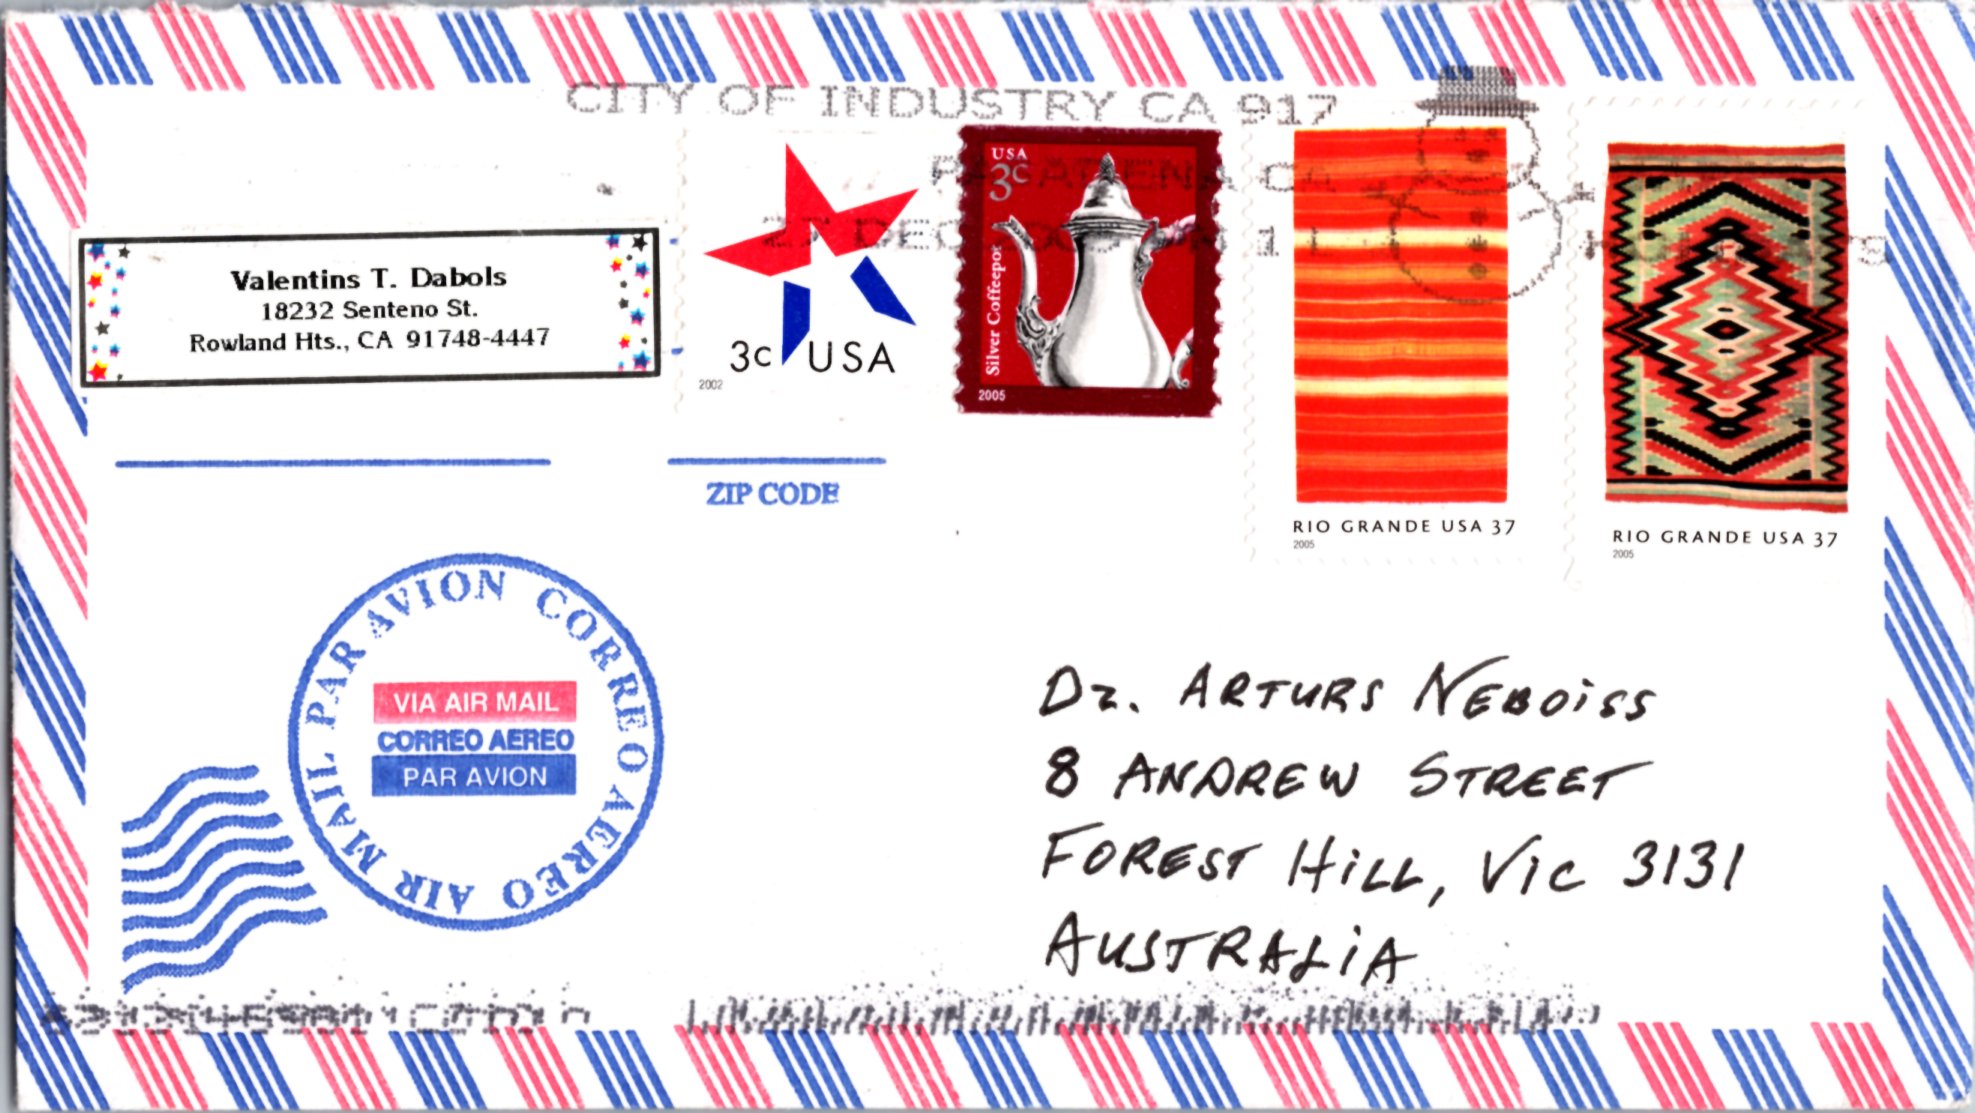 CITY OF INDUSTRY CA 917
PASADENA CA
27 DEC
Valentins T. Dabols
18232 Senteno St.
Rowland Hts., CA 91748-4447
3c USA
2002
USA
3c
Silver Coffeepot
2005
RIO GRANDE USA 37
2005
RIO GRANDE USA 37
2005
ZIP CODE
AIR MAIL PAR AVION CORREO AEREO
VIA AIR MAIL
CORREO AEREO
PAR AVION
Dr. ARTURS NEBOiSS
8 ANDREW STREET
FOREST HiLL, ViC 3131
AUSTRALiA